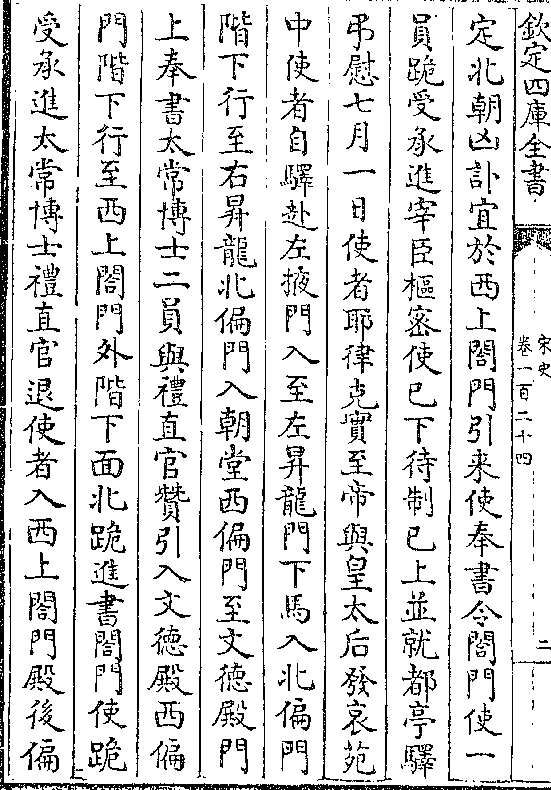 欽定四庫全書
宋史
卷一百二十四
二
定北朝凶訃宜於西上閤門引来使奉書令閤門使一
員跪受承進宰臣樞密使已下待制已上並就都亭驛
弔慰七月一日使者耶律克實至帝與皇太后發哀苑
中使者自驛赴左掖門入至左昇龍門下馬入北偏門
階下行至右昇龍北偏門入朝堂西偏門至文徳殿門
上奉書太常博士二員與禮直官贊引入文徳殿西偏
門階下行至西上閤門外階下面北跪進書閤門使跪
受承進太常博士禮直官退使者入西上閤門殿後偏